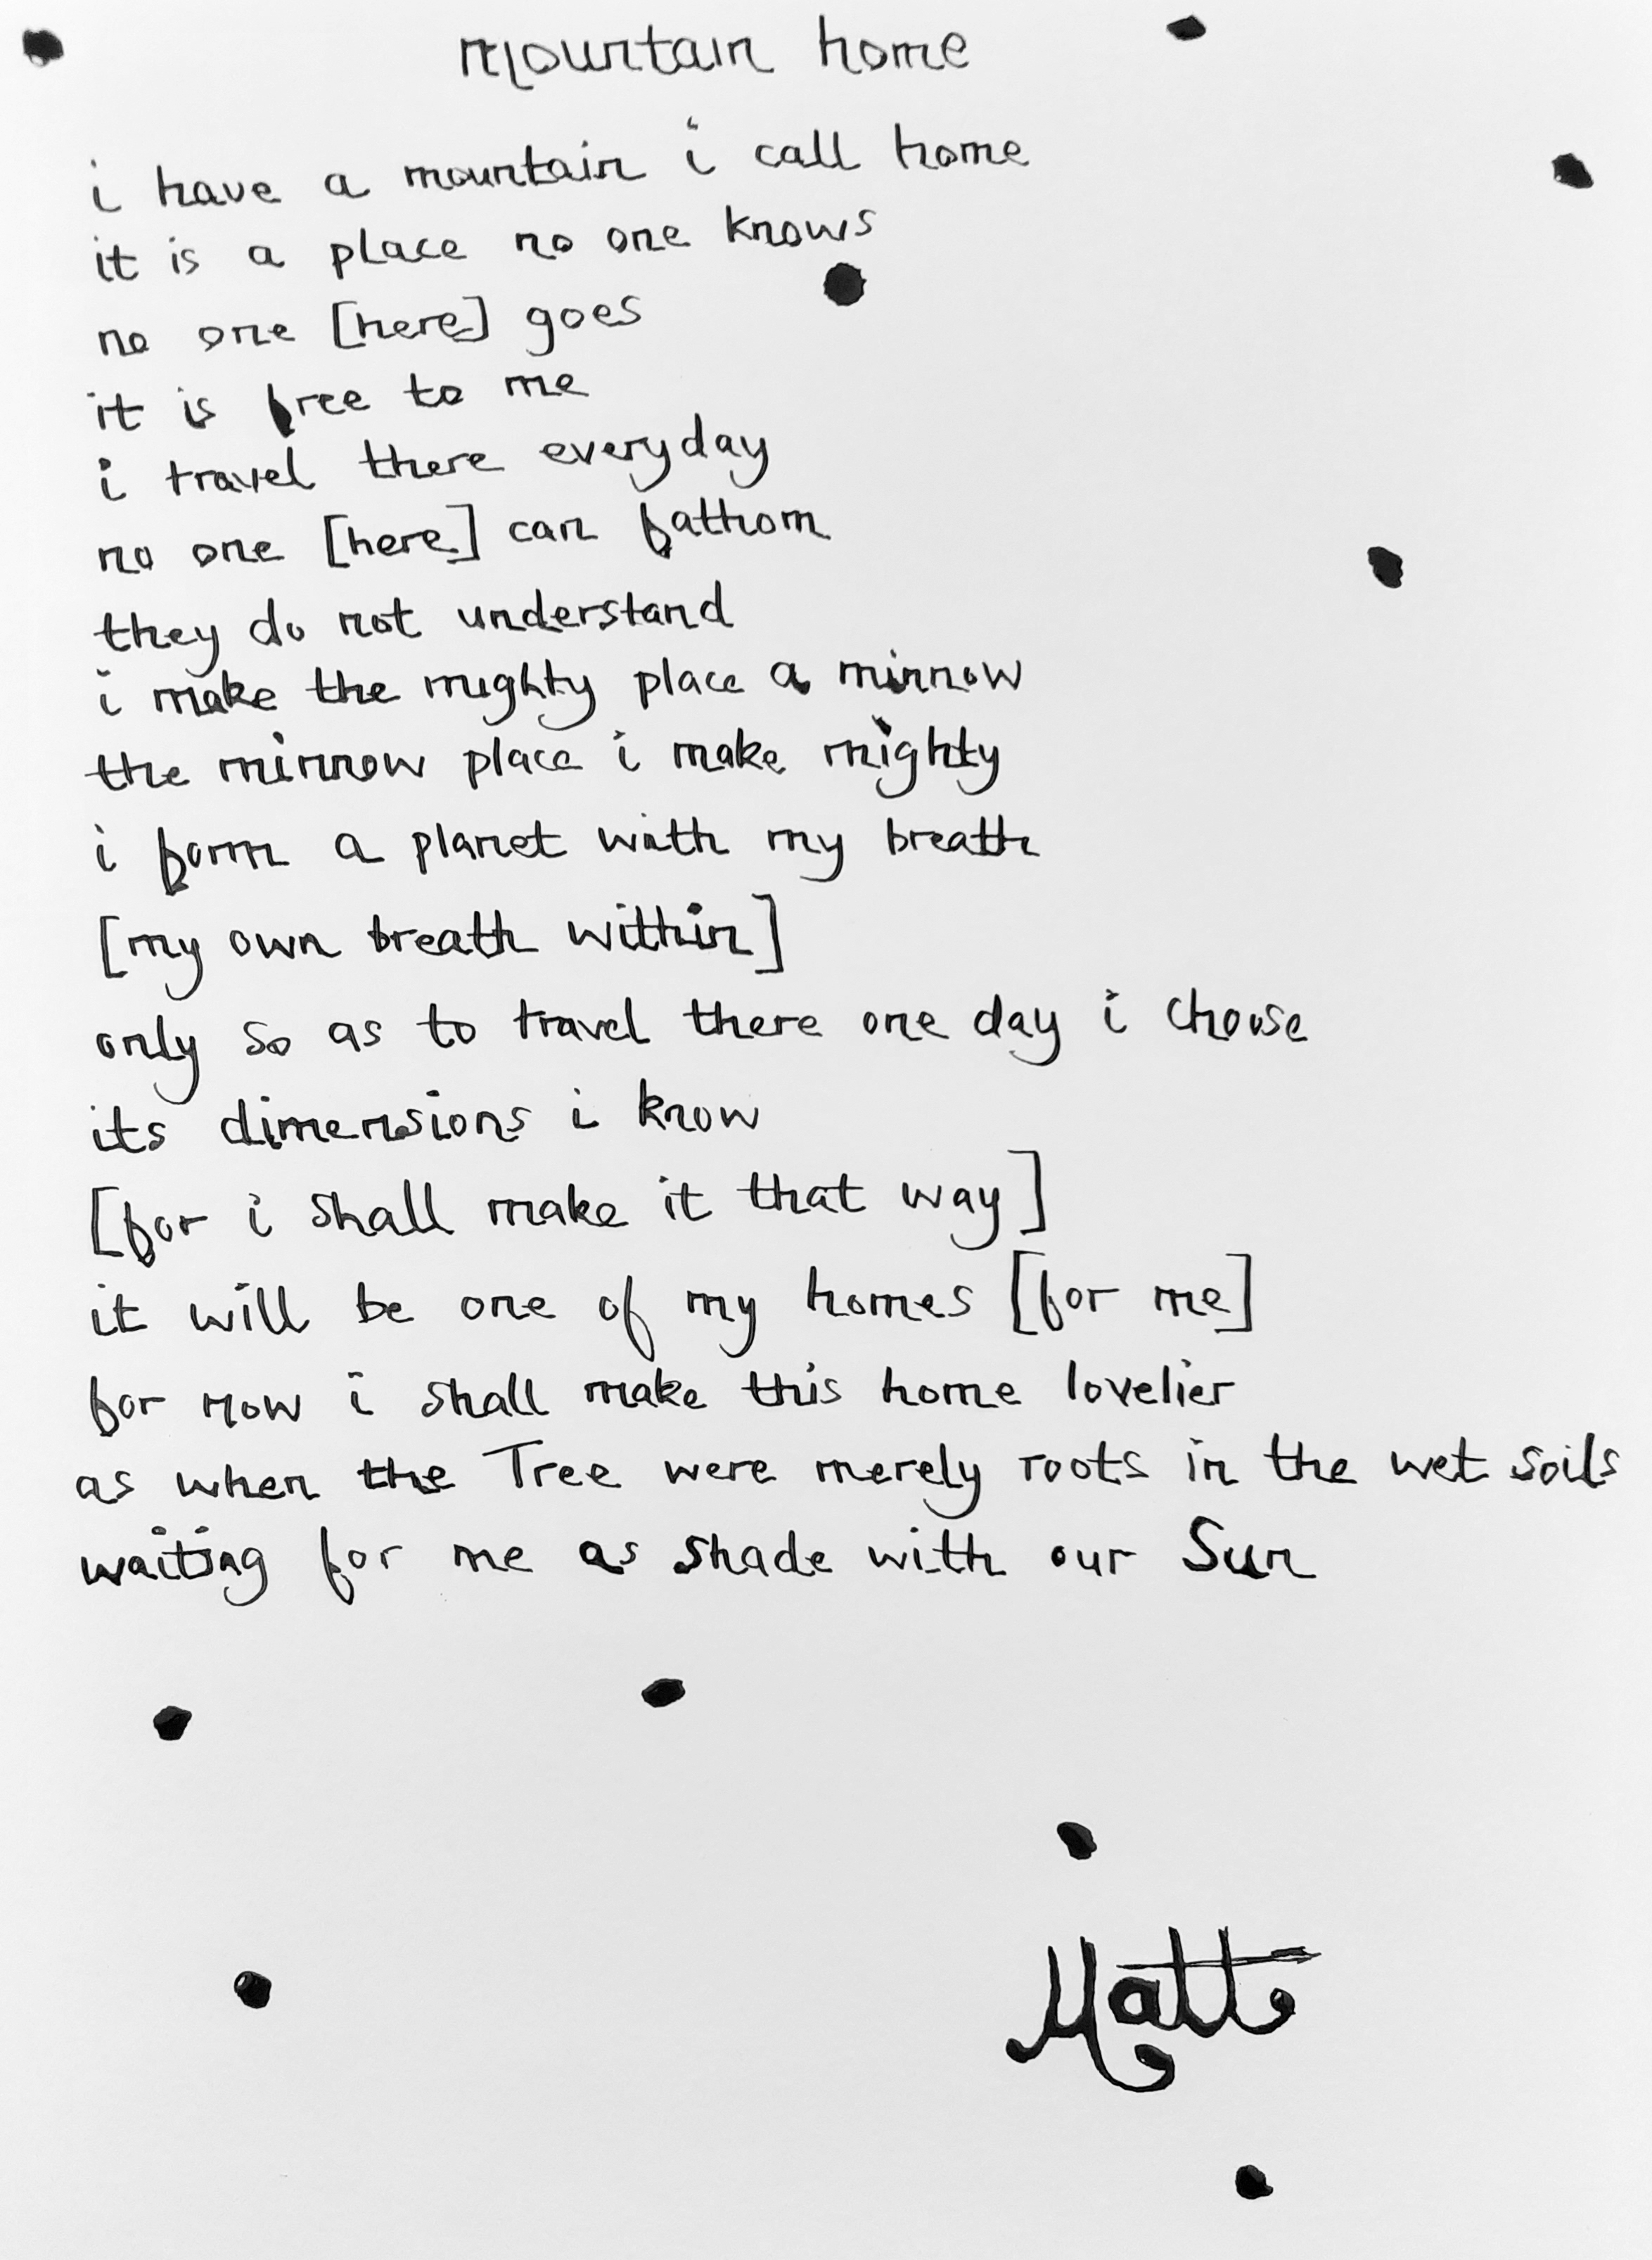 mountain home
i have a mountain i call home
it is a place no one knows
no one [here] goes
it is free to me
i travel there everyday
no one [here] can fathom
they do not understand
i make the mighty place a minnow
the minnow place i make mighty
i form a planet with my breath
[my own breath within]
only so as to travel there one day i choose
its dimensions i know
[for i shall make it that way]
it will be one of my homes [for me]
for now i shall make this home lovelier
as when the Tree were merely roots in the wet soils
waiting for me as shade with our Sun
Matt